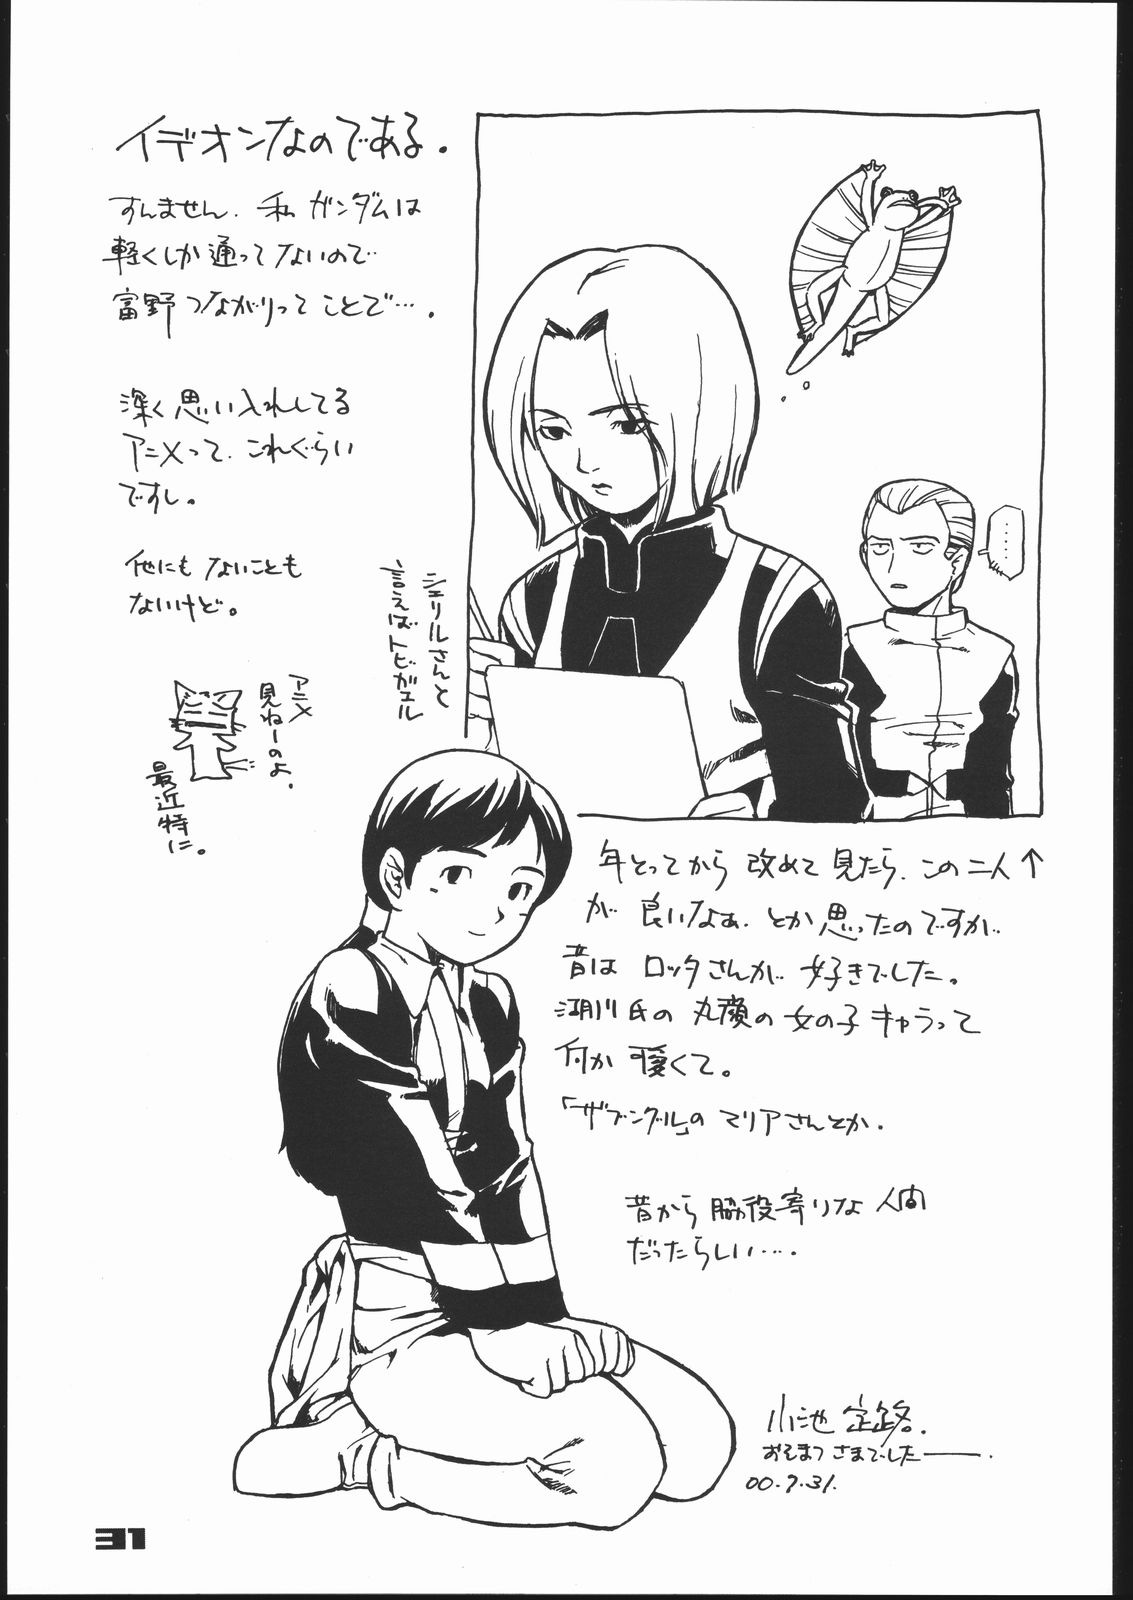 イデオンなのである。
すんません、私 ガンダムは
軽くしか通ってないので
富野つながりってことで…。
深く思い入れしてる
アニメって、これぐらい
ですし。
他にもないことも
ないけど。
アニメ
見ねーのよ、
最近特に。
シェリルさんと
言えばトビガエル
……
年とってから改めて見たら、この二人↑
が良いなぁ、とか思ったのですが
昔はロッタさんが好きでした。
湖川氏の丸顔の女の子キャラって
何か可愛くて。
「ザブングル」のマリアさんとか。
昔から脇役寄りな人間
だったらしい…。
小池定路。
おそまつさまでしたー。
00.7.31.
31